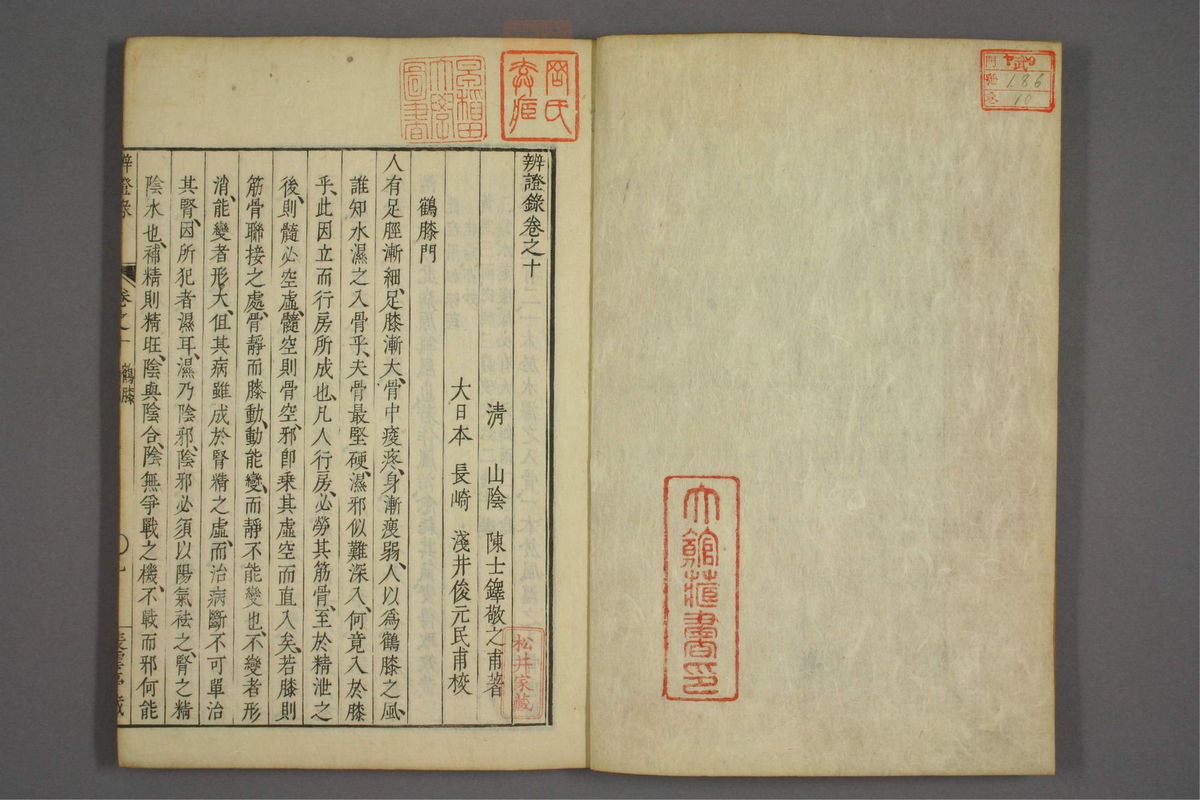 辨證錄卷之十
清 山陰 陳士鐸敬之甫著
大日本 長崎 淺井俊元民甫校
鶴膝門
人有足脛漸細、足膝漸大、骨中痠疼、身漸瘦弱、人以爲鶴膝之風、
誰知水濕之入骨乎、夫骨最堅硬、濕邪似難深入、何竟入於膝
乎、此因立而行房所成也、凡人行房、必勞其筋骨、至於精泄之
後、則髓必空虛、髓空則骨空、邪卽乘其虛空而直入矣、若膝則
筋骨聯接之處、骨靜而膝動、動能變、而靜不能變也、不變者形
消、能變者形大、但其病雖成於腎精之虛、而治病斷不可單治
其腎、因所犯者濕耳、濕乃陰邪、陰邪必須以陽氣祛之、腎之精
陰水也、補精則精旺、陰與陰合、陰無爭戰之機、不戰而邪何能
辨證錄
卷之十 鶴膝
松井家藏
武
門
號 186
卷 10